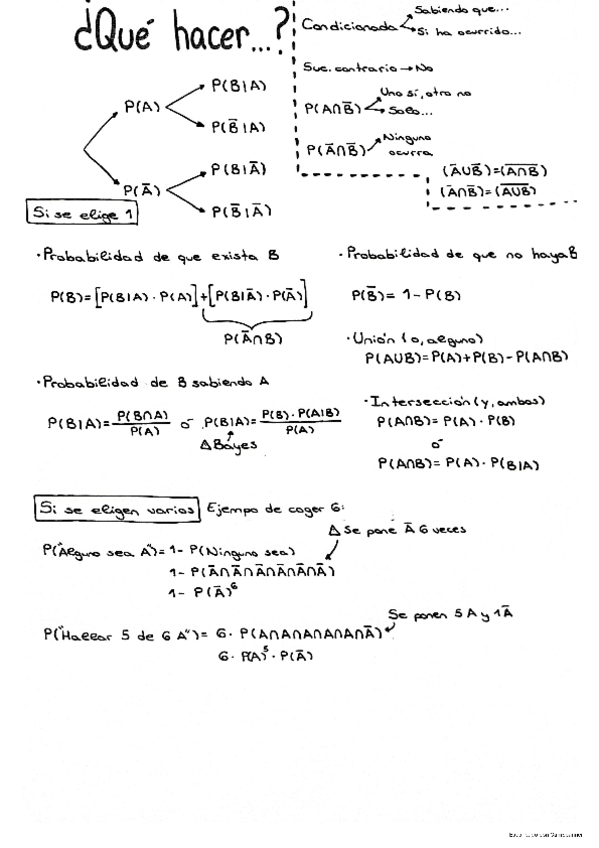 ¿Qué hacer...?
Condicionada
Sabiendo que...
Si ha ocurrido...
Suc. contrario → No
P(A∩B̅)
Uno sí, otro no
Solo...
P(A̅∩B̅)
Ninguno
ocurra
(A̅∪B̅)=(A∩B)̅
(A̅∩B̅)=(A∪B)̅
P(A)
P(B|A)
P(B̅|A)
P(A̅)
P(B|A̅)
P(B̅|A̅)
Si se elige 1
·Probabilidad de que exista B
P(B)=[P(B|A)·P(A)]+[P(B|A̅)·P(A̅)]
P(A̅∩B)
·Probabilidad de B sabiendo A
P(B|A)= P(B∩A)/P(A) ó P(B|A)= P(B)·P(A|B)/P(A)
Δ Bayes
·Probabilidad de que no haya B
P(B̅)= 1-P(B)
·Unión (o, alguno)
P(A∪B)=P(A)+P(B)-P(A∩B)
·Intersección (y, ambos)
P(A∩B)= P(A)·P(B)
ó
P(A∩B)= P(A)·P(B|A)
Si se eligen varios Ejempo de coger 6:
Δ Se pone A̅ 6 veces
P("Alguno sea A")= 1- P(Ninguno sea)
1- P(A̅∩A̅∩A̅∩A̅∩A̅∩A̅)
1- P(A̅)⁶
Se ponen 5 A y 1 A̅
P("Hallar 5 de 6 A")= 6· P(A∩A∩A∩A∩A∩A̅)
6· P(A)⁵·P(A̅)